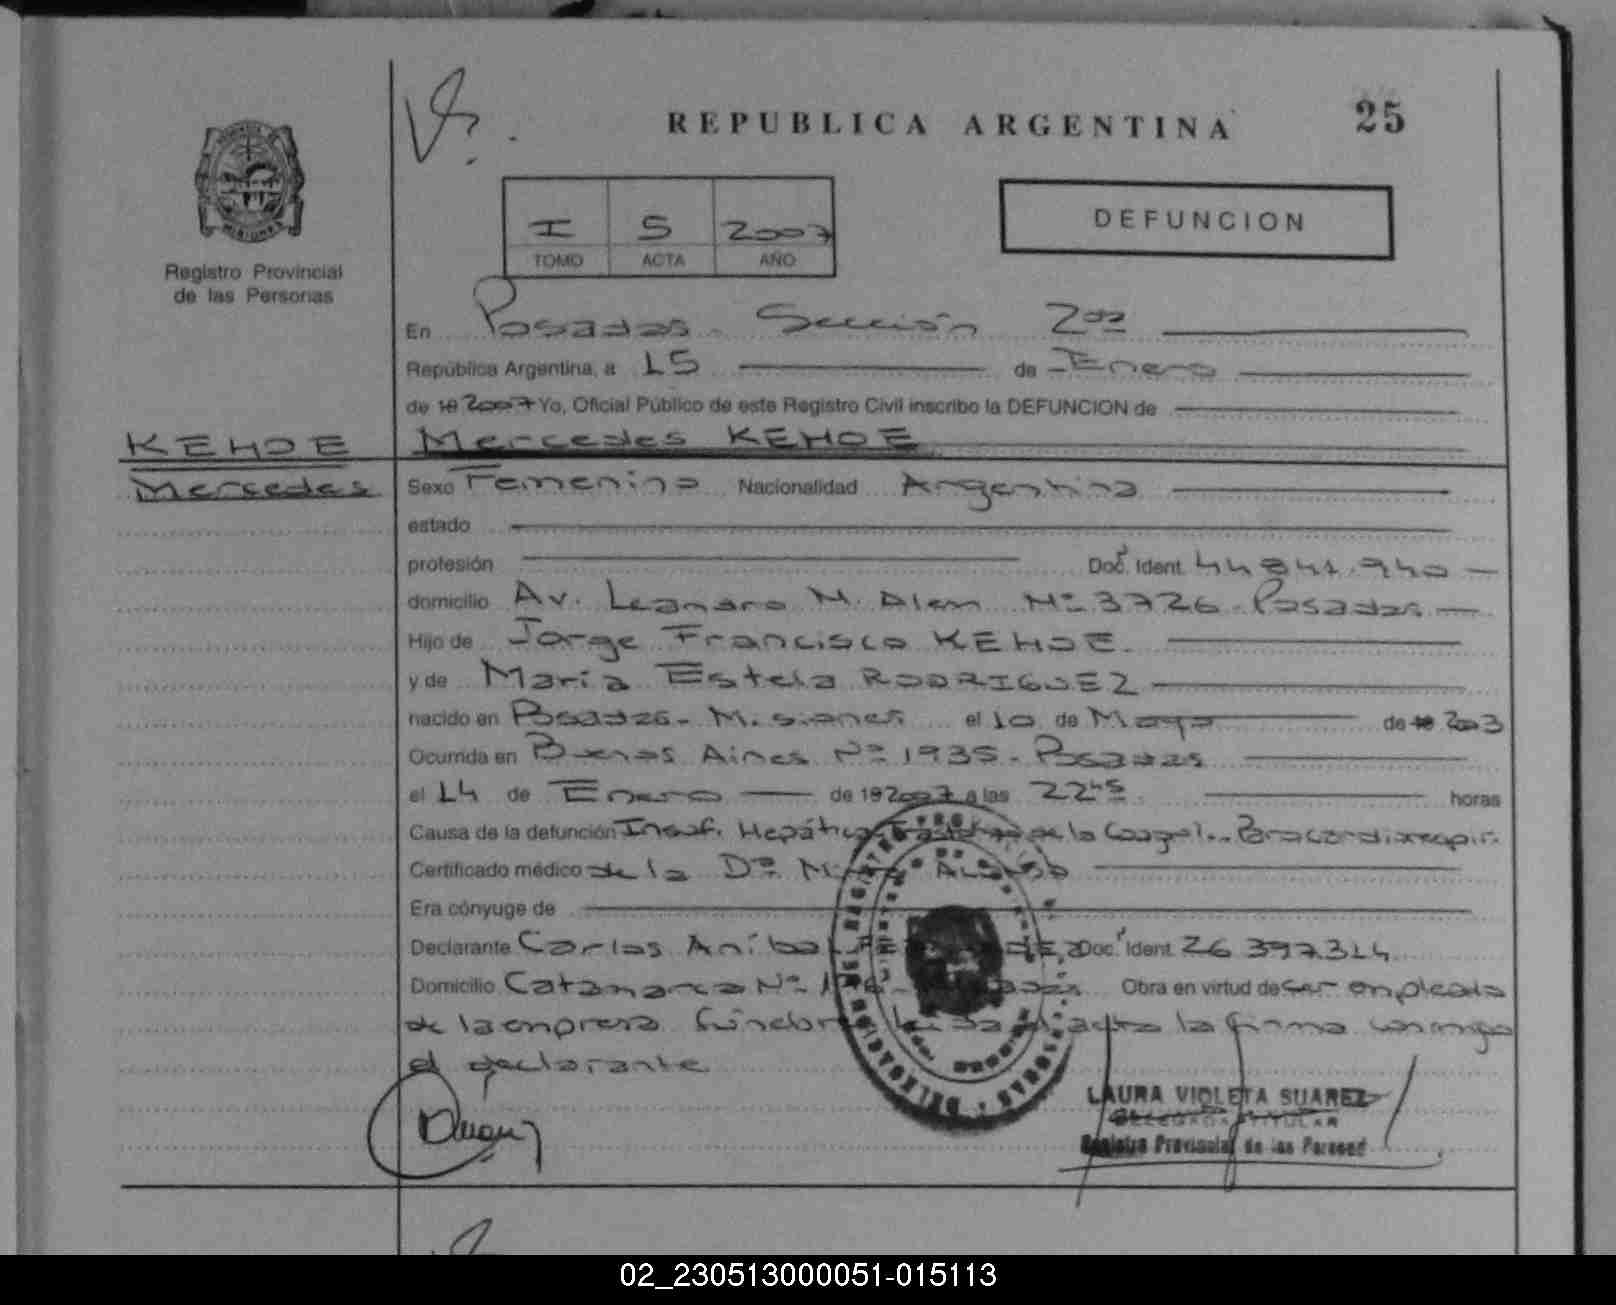 25
REPUBLICA ARGENTINA
I 5 2007
TOMO ACTA AÑO
DEFUNCION
MISIONES
Registro Provincial
de las Personas
En Posadas - Sección 2da
República Argentina, a 15 de Enero
de 19 2007 Yo, Oficial Público de este Registro Civil inscribo la DEFUNCION de
KEHOE Mercedes KEHOE
Mercedes Sexo Femenino Nacionalidad Argentina
estado
profesión Doc. Ident. 44 841.940
domicilio Av. Leandro N. Alem Nº 3726 - Posadas
Hijo de Jorge Francisco KEHOE
y de María Estela RODRIGUEZ
nacido en Posadas - Misiones el 10 de Mayo de 19 2003
Ocurrida en Buenos Aires Nº 1935 - Posadas
el 14 de Enero de 19 2007 a las 22 45 horas
Causa de la defunción Insuf. Hepática de la Coagul. Parocardiorespir.
Certificado médico de la Dra
Era cónyuge de
Declarante Carlos Aníbal Doc. Ident. 26 397314
Domicilio Catamarca Nº Obra en virtud de ser empleado
de la empresa fúnebre acta la firma conmigo
el declarante
LAURA VIOLETA SUAREZ
DELEGADA TITULAR
Registro Provincial de las Person
02_230513000051-015113